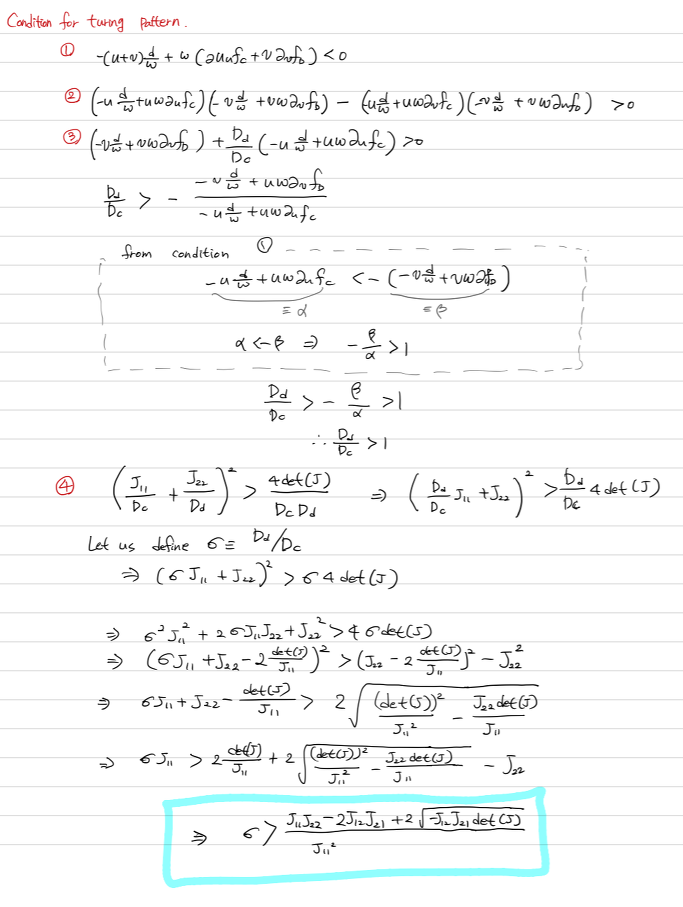 Condition for turing pattern.
① -(u+v) d/w + w (∂u fc + v ∂v fD) < 0
② (-u d/w + uw∂u fc)(-v d/w + vw∂v fD) - (u d/w + uw∂v fc)(-v d/w + vw∂u fD) > 0
③ (-v d/w + vw∂v fD) + Dd/Dc (-u d/w + uw∂u fc) > 0
Dd/Dc > - (-v d/w + uw∂v fD)/(-u d/w + uw∂u fc)
from condition ①
-u d/w + uw∂u fc < -(-v d/w + vw∂ fD)
≡ α ≡ β
α < -β ⇒ -β/α > 1
Dd/Dc > - β/α > 1
∴ Dd/Dc > 1
④ (J11/Dc + J22/Dd)² > 4det(J)/DcDd ⇒ (Dd/Dc J11 + J22)² > Dd/Dc 4 det(J)
Let us define σ ≡ Dd/Dc
⇒ (σ J11 + J22)² > σ 4 det(J)
⇒ σ² J11² + 2σJ11J22 + J22² > 4 σ det(J)
⇒ (σJ11 + J22 - 2 det(J)/J11)² > (J22 - 2 det(J)/J11)² - J22²
⇒ σJ11 + J22 - det(J)/J11 > 2 √((det(J))²/J11² - J22 det(J)/J11)
⇒ σJ11 > 2 det(J)/J11 + 2 √((det(J))²/J11² - J22 det(J)/J11) - J22
⇒ σ > (J11J22 - 2J12J21 + 2√(-J12J21 det(J)))/J11²